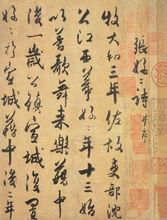 張好好詩 并序
牧大和三年佐故吏部沈
公江西幕好好年十三始
以善歌舞來樂籍中
後一歲公鎮宣城復置
好好於宣城籍中後二年